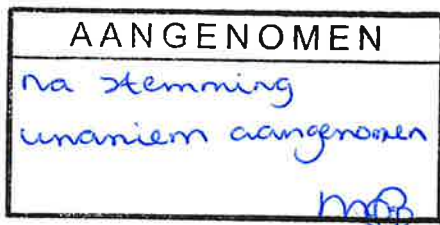 AANGENOMEN
na stemming
unaniem aangenomen